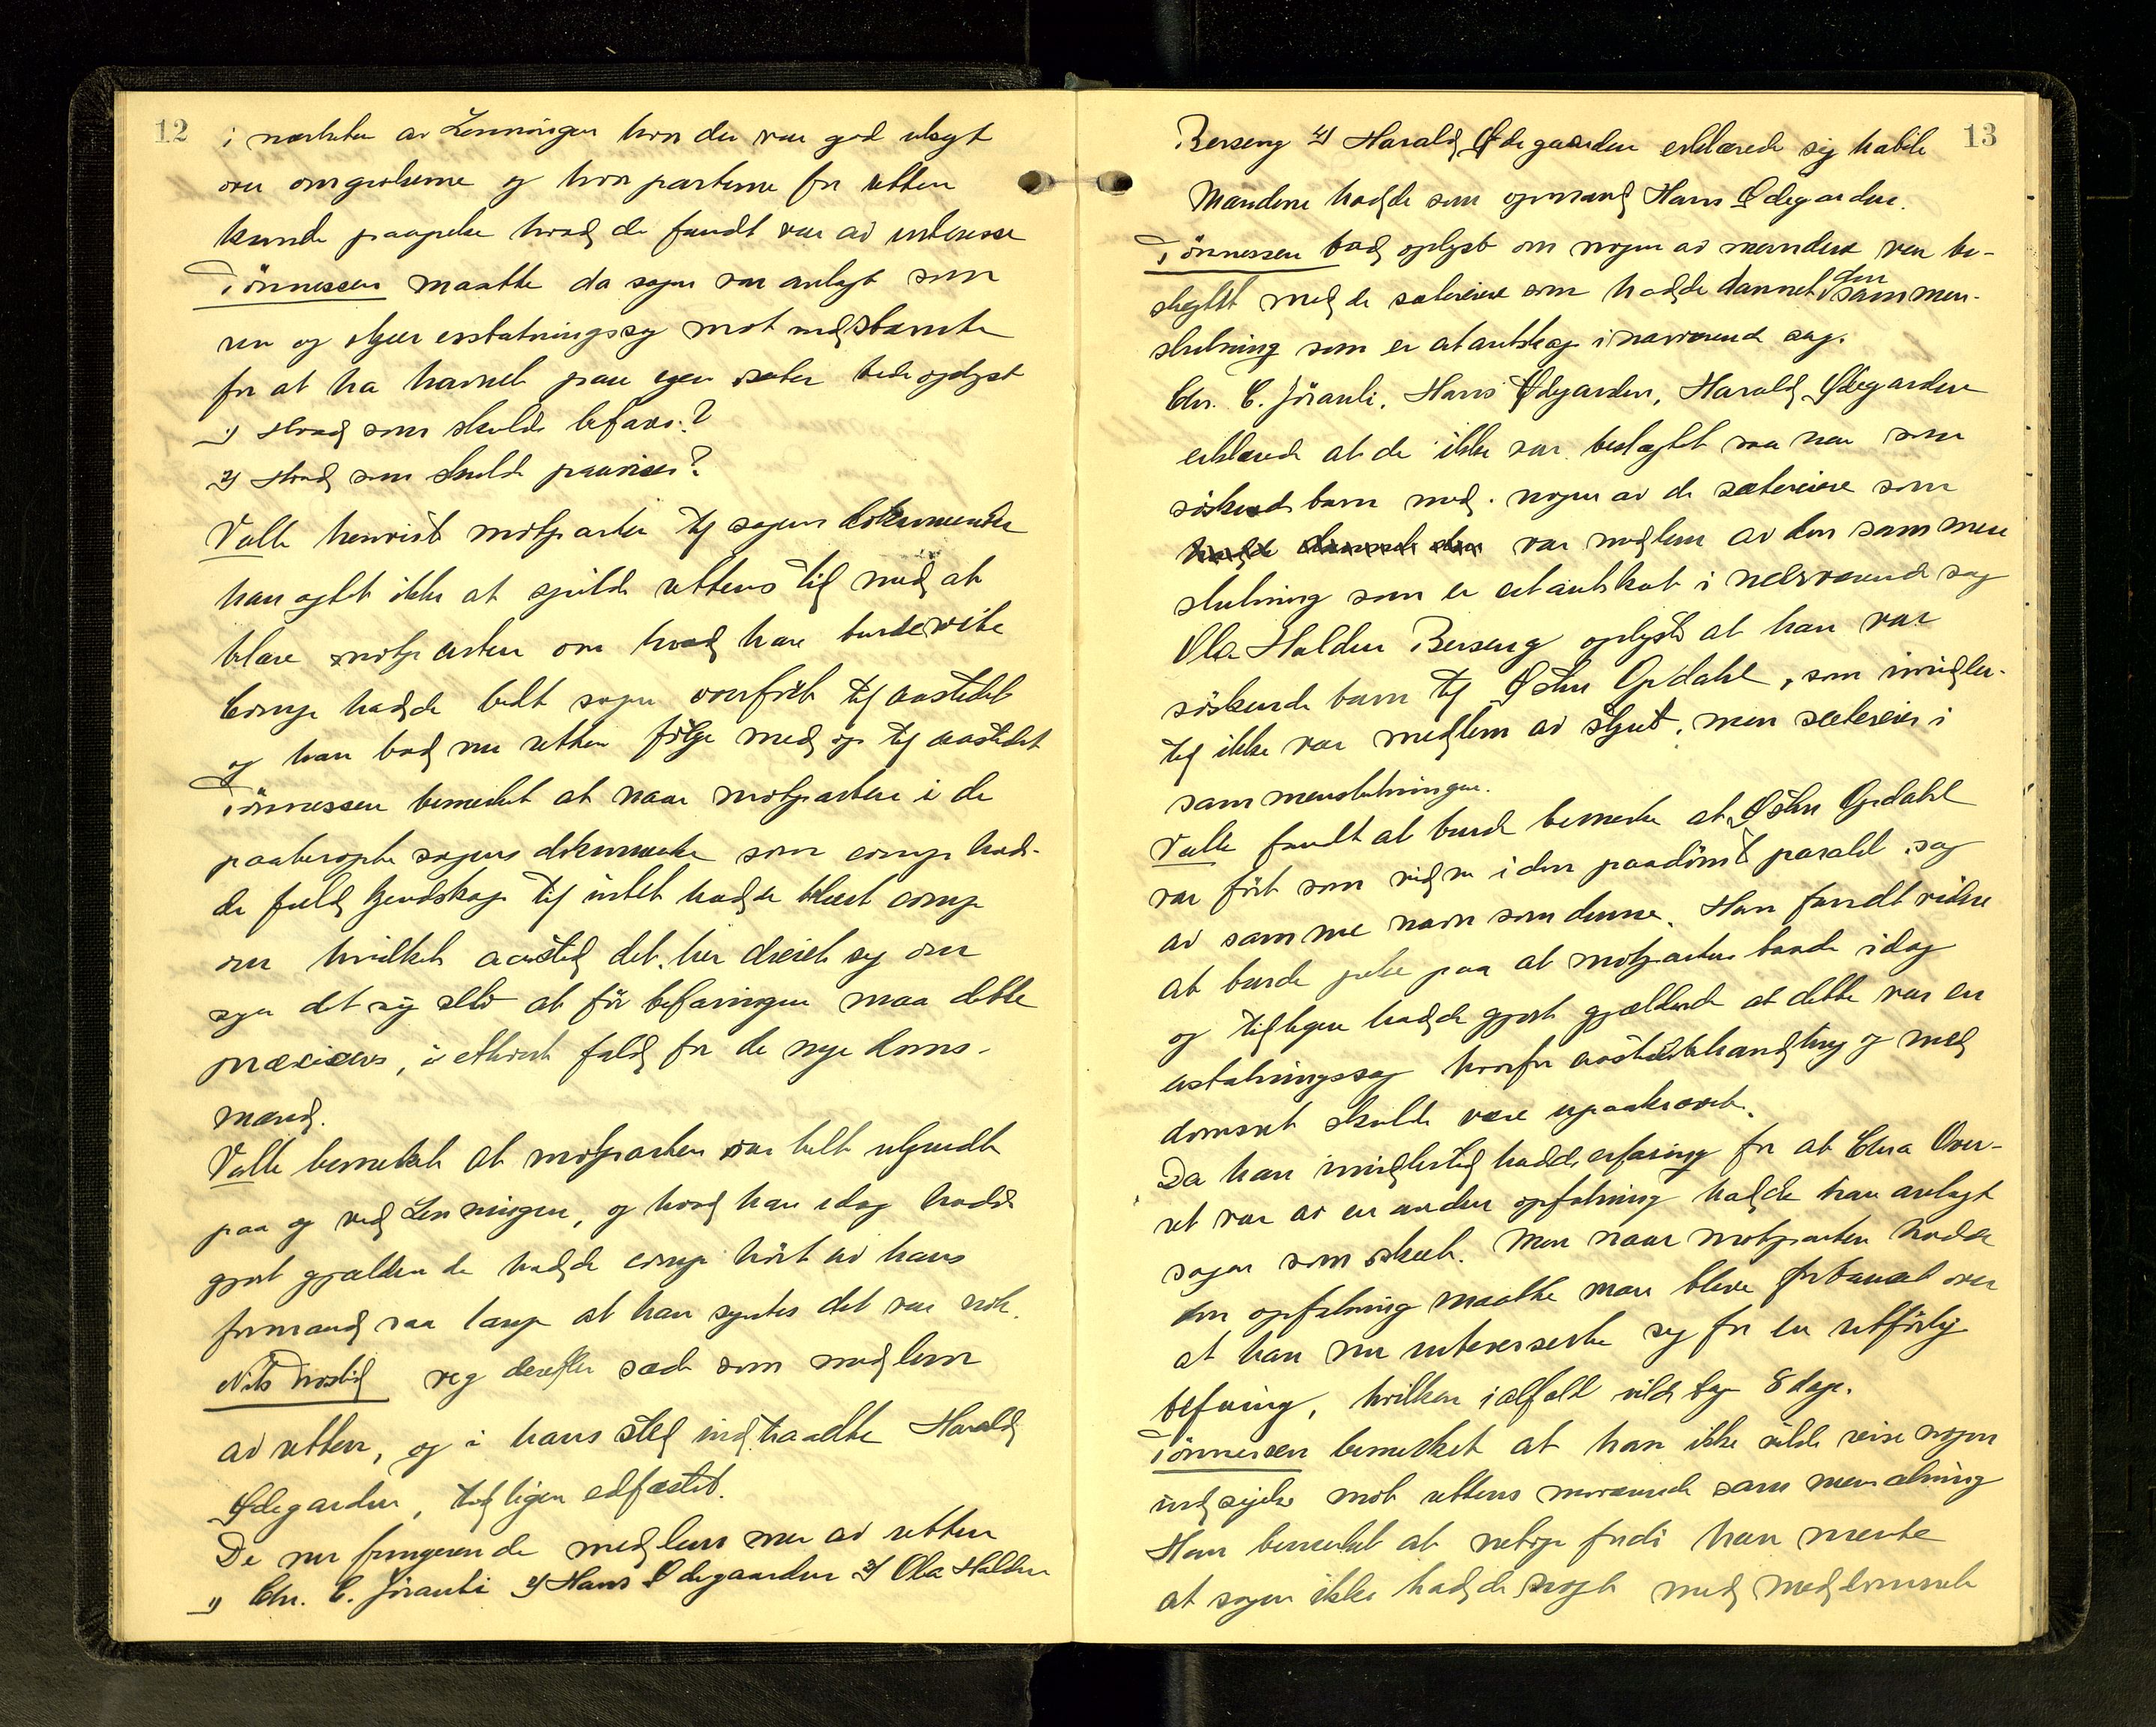 12
i nærheten av Lenningen hvor der var god utsigt
over omgivelserne og hvor parterne for retten
kunde paapeke hvad de fandt var av interesse
Tönnessen maatte da sagen var anlagt som
ren og skjær erstatningssag mot indstevnte
for at ha havnet paa egen sæter bede oplyst
1) Hvad som skulde befares?
2) Hvad som skulde paavises?
Valle henviste motparten til sagens dokumenter
han agtet ikke at spilde rettens tid med at
belære motparten om hvad han burde vite
Comp hadde bedt sagen overført til aastedet
og han bad nu retten följe med op til aastedet
Tönnessen bemerket at naar motparten i de
paaberopte sagens dokumenter som comp had-
de fuld kjendskap til intet hadde belært comp
om hvilket aasted det her dreiet sig om
sier det sig selv at før befaringen maa dette
præciseres, i ethvert fald for de nye doms-
mænd.
Valle bemerket at motparten var helt ukjendt
paa og ved Lenningen, og hvad han idag hadde
gjort gjældende hadde comp hört av hans
formand saa længe at han syntes det var nok.
Nils Trostid veg derefter sæde som medlem
av retten, og i hans sted indtraadte Harald
Ødegaarden, tidligere edfæstet.
De nu fungerende medlemmer av retten
1) Chr. C. Jöranli 2) Hans Ødegaarden 3) Ola Halden
13
Berseng 4) Harald Ødegaarden erklærede sig habile
Mændene hadde som opmand Hans Ødegarden.
Tönnessen bad oplyst om nogen av mændene var be-
slegtet med de sætereiere som hadde dannet den sammen-
slutning som er citantskap i nærværende sag.
Chr. C. Jöranli, Hans Ødegarden, Harald Ødegarden
erklærede at de ikke var beslægtet saa nær som
söskendebarn med nogen av de sætereiere som
hadde dannet den var medlem av den sammen
slutning som er citantskap i nærværende sag
Ola Halden Berseng oplyste at han var
söskendebarn til Østen Opdahl, som imidler-
tid ikke var medlem av styret, men sætereier i
sammenslutningen.
Valle fandt at burde bemerke at Østen Opdahl
var fört som vidne i den paadömte paralel sag
av samme navn som denne. Han fandt videre
at burde peke paa at motparten baade idag
og tidligere hadde gjort gjældende at dette var en
erstatningssag hvorfor aastedsbehandling og med
domsret skulde være upaakrævet.
Da han imidlertid hadde erfaring for at Chra Over-
ret var av en anden opfatning hadde han anlagt
sagen som skeet. Men naar motparten hadde
sin opfatning maatte man bleve forbauset over
at han nu interesserte sig for en utförlig
befaring, hvilken ialfald vilde tage 8 dage.
Tönnessen bemerket at han ikke vilde reise nogen
indsigelse mot rettens nuværende sammensætning
Han bemerket at netop fordi han mente
at sagen ikke hadde noget med meddomsret